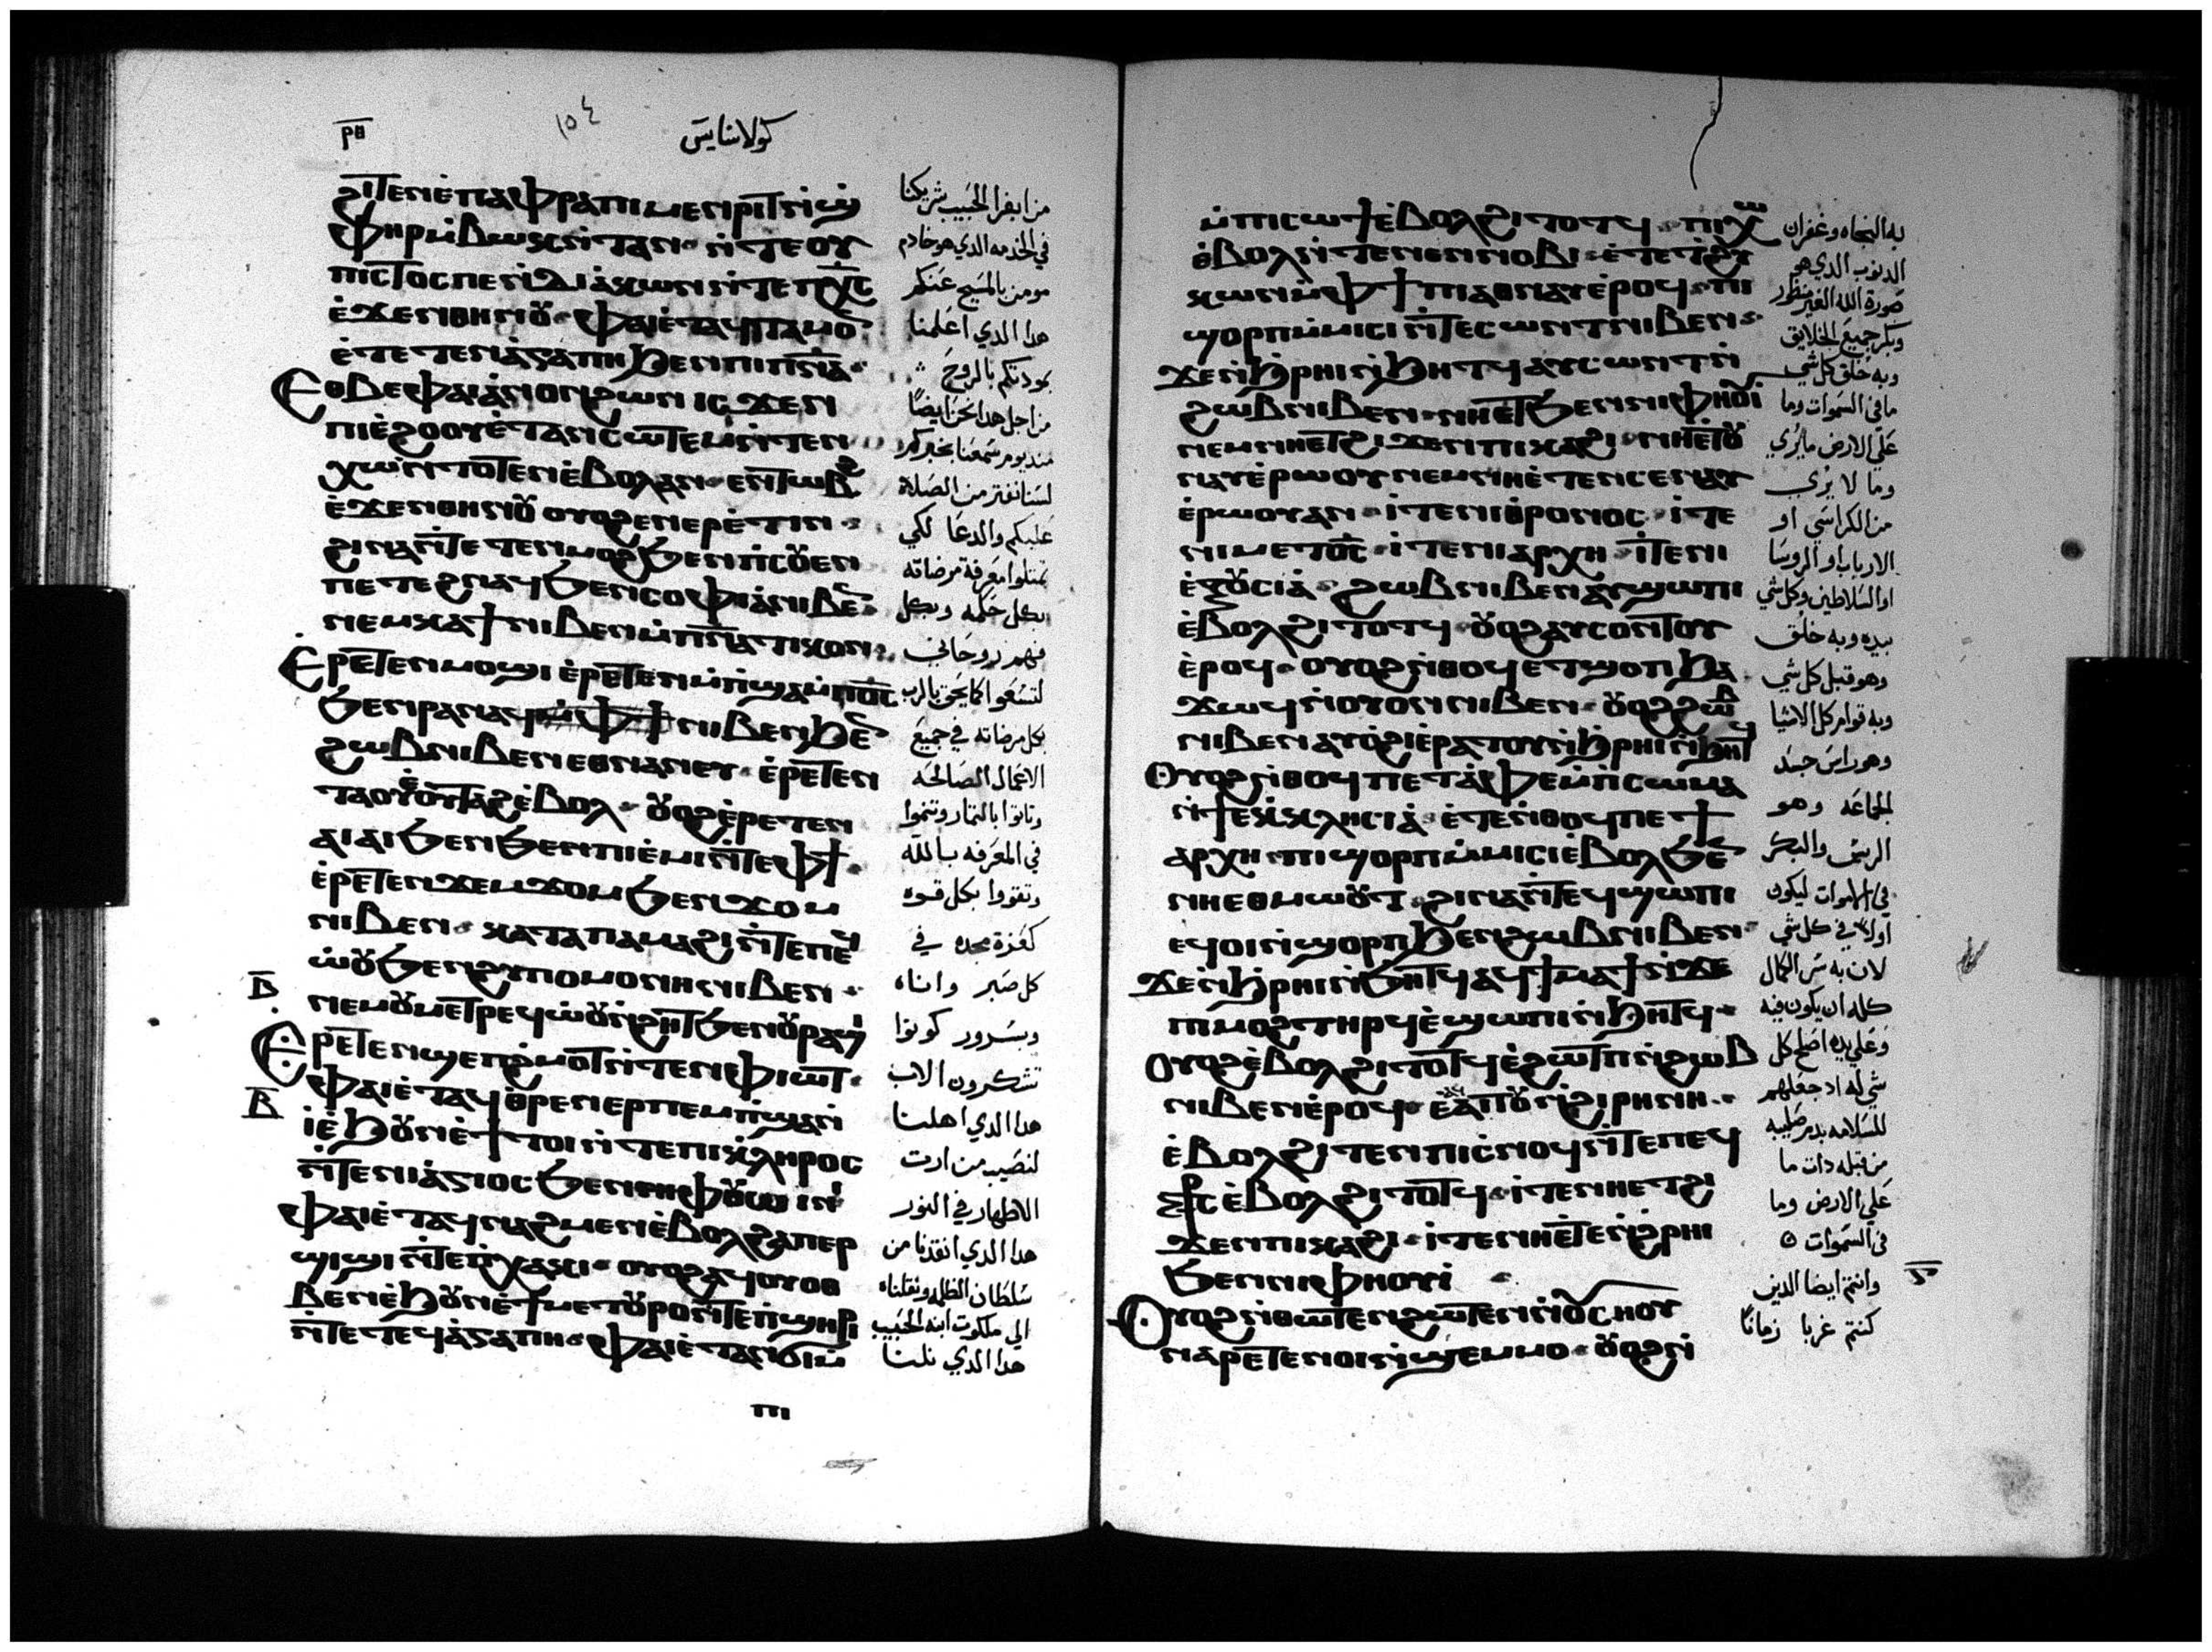 ⲣⲑ
١٥٤
كولاسايس
ϩⲓⲧⲉⲛⲉ̀ⲡⲁⲫⲣⲁⲡⲓⲙⲉⲛⲣⲓⲧⲛ̀ϣ
ⲫⲏⲣⲙ̀ⲃⲱⲕⲛ̀ⲧⲁⲛ · ⲛ̀ⲧⲉⲟⲩ
ⲡⲓⲥⲧⲟⲥⲡⲉⲛⲇⲓⲁ̀ⲕⲱⲛⲛ̀ⲧⲉⲡⲭ̅ⲥ̅
ⲉ̀ϫⲉⲛⲑⲏⲛⲟⲩ · ⲫⲁⲓⲉ̀ⲧⲁϥⲧⲁⲙⲟ
ⲉ̀ⲧⲉⲧⲉⲛⲁ̀ⲅⲁⲡⲏϧⲉⲛⲡⲓⲡ̅ⲛ̅ⲁ̅ ·
Ⲉⲑⲃⲉⲫⲁⲓⲁ̀ⲛⲟⲛϩⲱⲛ ⲓⲥϫⲉⲛ
ⲡⲓⲉ̀ϩⲟⲟⲩⲉ̀ⲧⲁⲛⲥⲱⲧⲉⲙⲛ̀ⲧⲉⲛ
ⲭⲱⲛ̀ⲧⲟⲧⲉⲛⲉ̀ⲃⲟⲗⲁⲛ · ⲉⲛⲧⲱⲃϩ
ⲉ̀ϫⲉⲛⲑⲏⲛⲟⲩ ⲟⲩⲟϩⲉⲛⲉⲣⲉ̀ⲧⲓⲛ ·
ϩⲓⲛⲁⲛ̀ⲧⲉⲧⲉⲛⲙⲟϩϧⲉⲛⲡ̀ⲥⲟⲩⲉⲛ
ⲡⲉⲧⲉϩⲛⲁϥϧⲉⲛⲥⲟⲫⲓⲁ̀ⲛⲓⲃⲉⲛ ·
ⲛⲉⲙⲕⲁϯⲛⲓⲃⲉⲛⲙ̀ⲡ̅ⲛ̅ⲁ̅ⲧⲓⲕⲟⲛ ·
Ⲉⲣⲉⲧⲉⲛⲙⲟϣⲓ ⲉ̀ⲣⲉⲧⲉⲛⲙ̀ⲡ̀ϣⲁⲙ̀ⲡ̅ⲟ̅ⲥ̅
ϧⲉⲛⲣⲁⲛⲁϥⲙ̀ⲫϯⲛⲓⲃⲉⲛϧⲉⲛ
ϩⲱⲃⲛⲓⲃⲉⲛⲉⲑⲛⲁⲛⲉⲩ · ⲉ̀ⲣⲉⲧⲉⲛ
ⲧⲁⲟⲩⲉ̀ⲟⲩⲧⲁϩⲉ̀ⲃⲟⲗ · ⲟⲩⲟϩⲉ̀ⲣⲉⲧⲉⲛ
ⲁⲓⲁⲓϧⲉⲛϧⲉⲛⲡⲓⲉ̀ⲙⲓⲛ̀ⲧⲉⲫϯ ·
ⲉ̀ⲣⲉⲧⲉⲛϫⲉⲙϫⲟⲙϧⲉⲛϫⲟⲙ
ⲛⲓⲃⲉⲛ · ⲕⲁⲧⲁⲡⲁⲙⲁϩⲓⲛ̀ⲧⲉⲡⲉϥ
ⲱ̀ⲟⲩϧⲉⲛϩⲩⲡⲟⲙⲟⲛⲏⲛⲓⲃⲉⲛ ·
ⲃ̅
ⲛⲉⲙⲟⲩⲙⲉⲧⲣⲉϥⲱ̀ⲟⲩⲛ̀ϩⲏⲧϧⲉⲛⲟⲩⲣⲁϣⲓ
Ⲉⲣⲉⲧⲉⲛϣⲉⲡϩ̀ⲙⲟⲧⲛ̀ⲧⲉⲛⲫⲓⲱⲧ ·
ⲃ̅
ⲫⲁⲓⲉ̀ⲧⲁϥⲑ̀ⲣⲉⲛⲉⲣⲡⲉⲙⲡ̀ϣⲁⲛ̀
ⲓⲉ̀ϧⲟⲩⲛⲉ̀ϯⲧⲟⲓⲛ̀ⲧⲉⲡⲓⲕ̀ⲗⲏⲣⲟⲥ
ⲛ̀ⲧⲉⲛⲓⲁ̀ⲅⲓⲟⲥϧⲉⲛⲡⲏⲫⲟⲩⲱⲓⲛⲓ
ⲫⲁⲓⲉ̀ⲧⲁϥⲛⲁϩⲙⲉⲛⲉ̀ⲃⲟⲗϩⲁⲡⲉⲣ
ϣⲓϣⲓ ⲛ̀ⲧⲉⲡ̀ⲭⲁⲕⲓ · ⲟⲩⲟϩⲁϥⲟⲩⲟⲑ
ⲃⲉⲛⲉ̀ϧⲟⲩⲛⲉ̀ϯⲙⲉⲧⲟⲩⲣⲟⲛ̀ⲧⲉⲡ̀ϣⲏⲣⲓ
ⲛ̀ⲧⲉⲧⲉϥⲁ̀ⲅⲁⲡⲏ · ⲫⲁⲓⲉ̀ⲧⲁⲛϭⲓⲙ̀
ⲡⲓ
من ابفرا الحبيب شريكنا
في الخدمه الدي هو خادم
مومن بالمسيح عنكم
هدا الدي اعلمنا
بمودتكم بالروح ·
من اجل هدا نحن ايضا
مند يوم سمعنا بخبركم
لسنا نفتر من الصلاة
عليكم والدعا لكي
تمتلوا معرفة مرضاته
بكل حكمه وبكل
فهم روحاني
لتسعوا كما يحق بالرب
بكل مرضاته في جميع
الاعمال الصالحه
وتاتوا بالتمار وتنموا
في المعرفه بالله
وتقووا بكل قوه
كعزة مجده في
كل صبر واناه
وبسرور كونوا
تشكرون الاب
هدا الدي اهلنا
لنصيب من ارت
الاطهار في النور
هدا الدي انقدنا من
سلطان الظلمه ونقلناه
الي ملكوت ابنه الحبيب
هدا الدي نلنا
ⲙ̀ⲡⲓⲥⲱϯⲉ̀ⲃⲟⲗϩⲓⲧⲟⲧϥ · ⲡⲓⲭⲱ
ⲉ̀ⲃⲟⲗⲛ̀ⲧⲉⲛⲉⲛⲛⲟⲃⲓ · ⲉ̀ⲧⲉⲧϩⲩ
ⲕⲱⲛⲙ̀ⲫϯⲡⲓⲁⲑⲛⲁⲩⲉ̀ⲣⲟϥ · ⲡⲓ
ϣⲟⲣⲡⲙ̀ⲙⲓⲥⲓ ⲛ̀ⲧⲉⲥⲱⲛⲧⲛⲓⲃⲉⲛ ·
ϫⲉⲛ̀ϧⲣⲏⲓⲛ̀ϧⲏⲧϥⲁⲩⲥⲱⲛⲧⲛ̀
ϩⲱⲃⲛⲓⲃⲉⲛ · ⲛⲏⲉⲧϧⲉⲛⲛⲓⲫⲏⲟⲩⲓ
ⲛⲉⲙⲛⲏⲉⲧϩⲓϫⲉⲛⲡⲓⲕⲁϩⲓ · ⲛⲏⲉ̀ⲧⲟⲩ
ⲛⲁⲩⲉ̀ⲣⲱⲟⲩ ⲛⲉⲙⲛⲏⲉ̀ⲧⲉⲛⲥⲉⲛⲁⲩ
ⲉ̀ⲣⲱⲟⲩⲁⲛ · ⲓ̀ⲧⲉⲛⲓⲑ̀ⲣⲟⲛⲟⲥ · ⲓ̀ⲧⲉ
ⲛⲓⲙⲉⲧⲟ̅ⲥ̅ · ⲓ̀ⲧⲉⲛⲓⲁⲣⲭⲏ · ⲓ̀ⲧⲉⲛⲓ
ⲉ̀ⲝⲟⲩⲥⲓⲁ̀ · ϩⲱⲃⲛⲓⲃⲉⲛⲁⲩϣⲱⲡⲓ
ⲉ̀ⲃⲟⲗϩⲓⲧⲟⲧϥ · ⲟⲩⲟϩⲁⲩⲥⲟⲛⲧⲟⲩ
ⲉ̀ⲣⲟϥ · ⲟⲩⲟϩⲛ̀ⲑⲟϥⲉⲧϣⲟⲡϧⲁ
ϫⲱϥⲛ̀ⲟⲩⲟⲛⲛⲓⲃⲉⲛ · ⲟⲩⲟϩϩⲱⲃ
ⲛⲓⲃⲉⲛⲁⲩⲟ̀ϩⲓⲉ̀ⲣⲁⲧⲟⲩⲛ̀ϧⲣⲏⲓⲛ̀ϧⲏⲧϥ
Ⲟⲩⲟϩⲛ̀ⲑⲟϥⲡⲉⲧⲁ̀ⲫⲉⲙ̀ⲡ̀ⲥⲱⲙⲁ
ⲛ̀ϯⲉⲕ̀ⲕⲗⲏⲥⲓⲁ̀ · ⲉ̀ⲧⲉⲛ̀ⲑⲟϥⲡⲉϯ
ⲁⲣⲭⲏ · ⲡⲓϣⲟⲣⲡⲙ̀ⲙⲓⲥⲓⲉ̀ⲃⲟⲗϧⲉⲛ
ⲛⲏⲉⲑⲙⲱⲟⲩⲧ · ϩⲓⲛⲁⲛ̀ⲧⲉϥϣⲱⲡⲓ
ⲉϥⲟⲓⲛ̀ϣⲟⲣⲡϧⲉⲛϩⲱⲃⲛⲓⲃⲉⲛ ·
ϫⲉⲛ̀ϧⲣⲏⲓⲛ̀ϧⲏⲧϥⲁϥϯⲙⲁϯⲛ̀ϫⲉ
ⲡⲓⲙⲟϩⲧⲏⲣϥⲉ̀ϣⲱⲡⲓⲛ̀ϧⲏⲧϥ ·
Ⲟⲩⲟϩⲉ̀ⲃⲟⲗϩⲓⲧⲟⲧϥⲉ̀ϩⲱⲧⲡⲛ̀ϩⲱⲃ
ⲛⲓⲃⲉⲛⲉ̀ⲣⲟϥ · ⲉ̀ⲁϥⲁⲡⲟⲩⲛ̀ϩⲓⲣⲏⲛⲏ ·
ⲉ̀ⲃⲟⲗϩⲓⲧⲉⲛⲡⲓⲥ̀ⲛⲟϥⲛ̀ⲧⲉⲡⲉϥ
ⲥ̅ⲧ̅ⲥ̅ⲉ̀ⲃⲟⲗϩⲓⲧⲟⲧϥ · ⲓ̀ⲧⲉⲛⲏⲉⲧϩⲓ
ϫⲉⲛⲡⲓⲕⲁϩⲓ · ⲓ̀ⲧⲉⲛⲏⲉ̀ⲧⲉⲛ̀ϩⲣⲏⲓ
ϧⲉⲛⲛⲓⲫⲏⲟⲩⲓ ·
Ⲟⲩⲟϩⲛ̀ⲑⲱⲧⲉⲛϩⲱⲧⲉⲛⲛ̀ⲟⲩⲥⲏⲟⲩ
ⲛⲁⲣⲉⲧⲉⲛⲟⲓⲛ̀ϣⲉⲙⲙⲟ · ⲟⲩⲟϩⲛ̀
به النجاه وغفران
الدنوب الدي هو
صورة الله الغير منظور
وبكر جميع الخلايق
وبه خلق كل شي
ما في السموات وما
علي الارض ما يري
وما لا يري
من الكراسي او
الارباب او الروسا
او السلاطين وكل شي
بيده وبه خلق
وهو قبل كل شي
وبه قوام كل الاشيا
وهو راس جسد
الجماعه وهو
الريس والبكر
في الاموات ليكون
اولا في كل شي
لان به سر الكمال
كله ان يكون فيه
وعلي يده اصلح كل
شي له اد جعلهم
للسلامه بدم صليبه
من قبله دات ما
علي الارض وما
في السموات
وانتم ايضا الدين
كنتم غربا زمانا